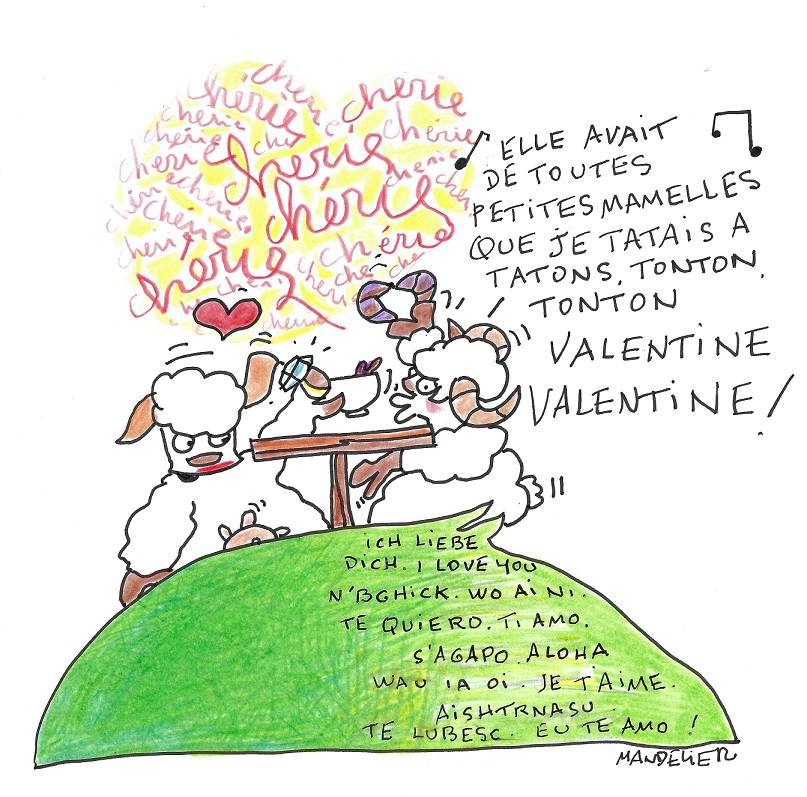 cherie cherie
cherie cherie
cherie cherie
cherie cherie
chérie cherie
cherie chérie
chérie
ELLE AVAIT
DE TOUTES
PETITES MAMELLES
QUE JE TATAIS A
TATONS, TONTON,
TONTON
VALENTINE
VALENTINE !
ICH LIEBE
DICH. I LOVE YOU
N'BGHICK. WO AI NI.
TE QUIERO. TI AMO.
S'AGAPO. ALOHA
WAU IA OI. JE T'AIME.
AISHTRNASU.
TE LUBESC. EU TE AMO !
MANDELIER